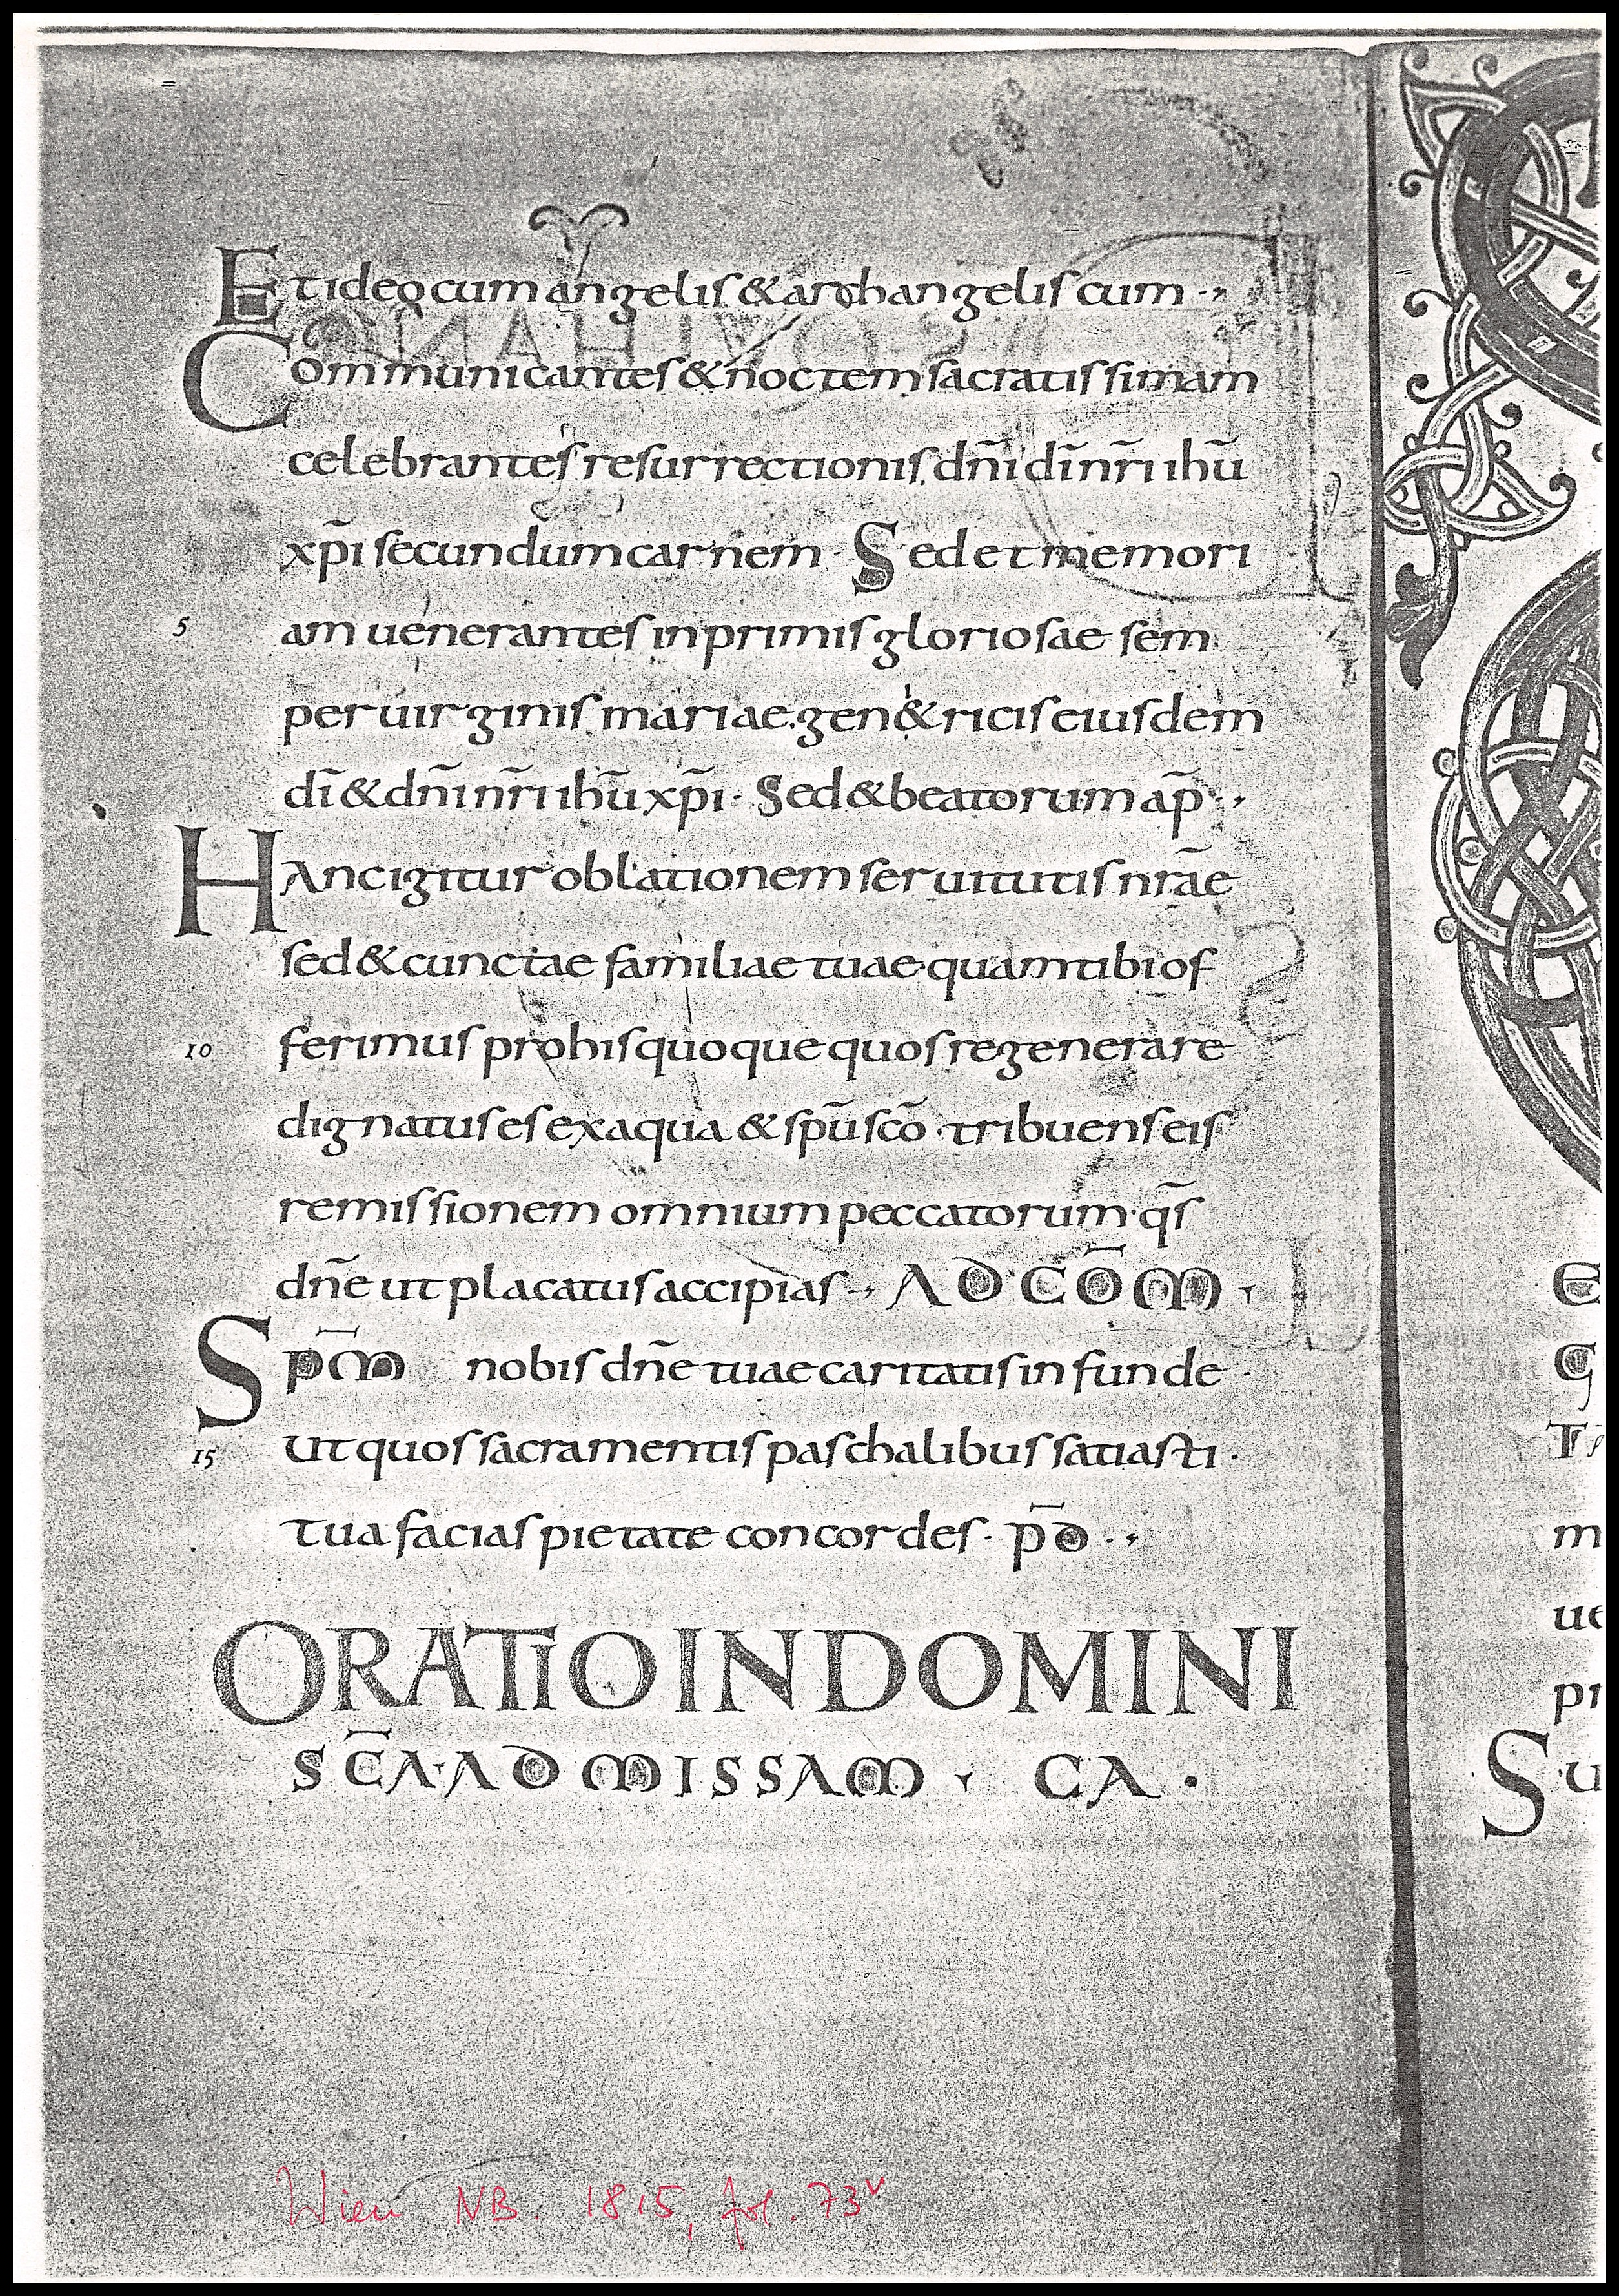 Et ideo cum angelis & archangelis cum
Communicantes & noctem sacratissimam
celebrantes resurrectionis dn̄i dī nr̄i ihū
xp̄i secundum carnem · Sed et memori
5 am uenerantes inprimis gloriosae sem
per uirginis mariae. gen&ricis eiusdem
dī & dn̄i nr̄i ihū xp̄i · Sed & beatorum ap̄ · ,
HAnc igitur oblationem seruitutis nrāe
sed & cunctae familiae tuae · quam tibi of
10 ferimus pro his quoque quos regenerare
dignatus es ex aqua & sp̄u sc̄o · tribuens eis
remissionem omnium peccatorum · qs̄
dn̄e ut placatus accipias · , AD CŌM ·
Sp̄m nobis dn̄e tuae caritatis infunde ·
15 Ut quos sacramentis paschalibus satiasti ·
tua facias pietate concordes · p̄d · ,
ORATIO IN DOMINI
SC̄A · AD MISSAM · CA ·
E
G
T
m
ue
pr
Su
Wien NB. 1815, fol. 73v